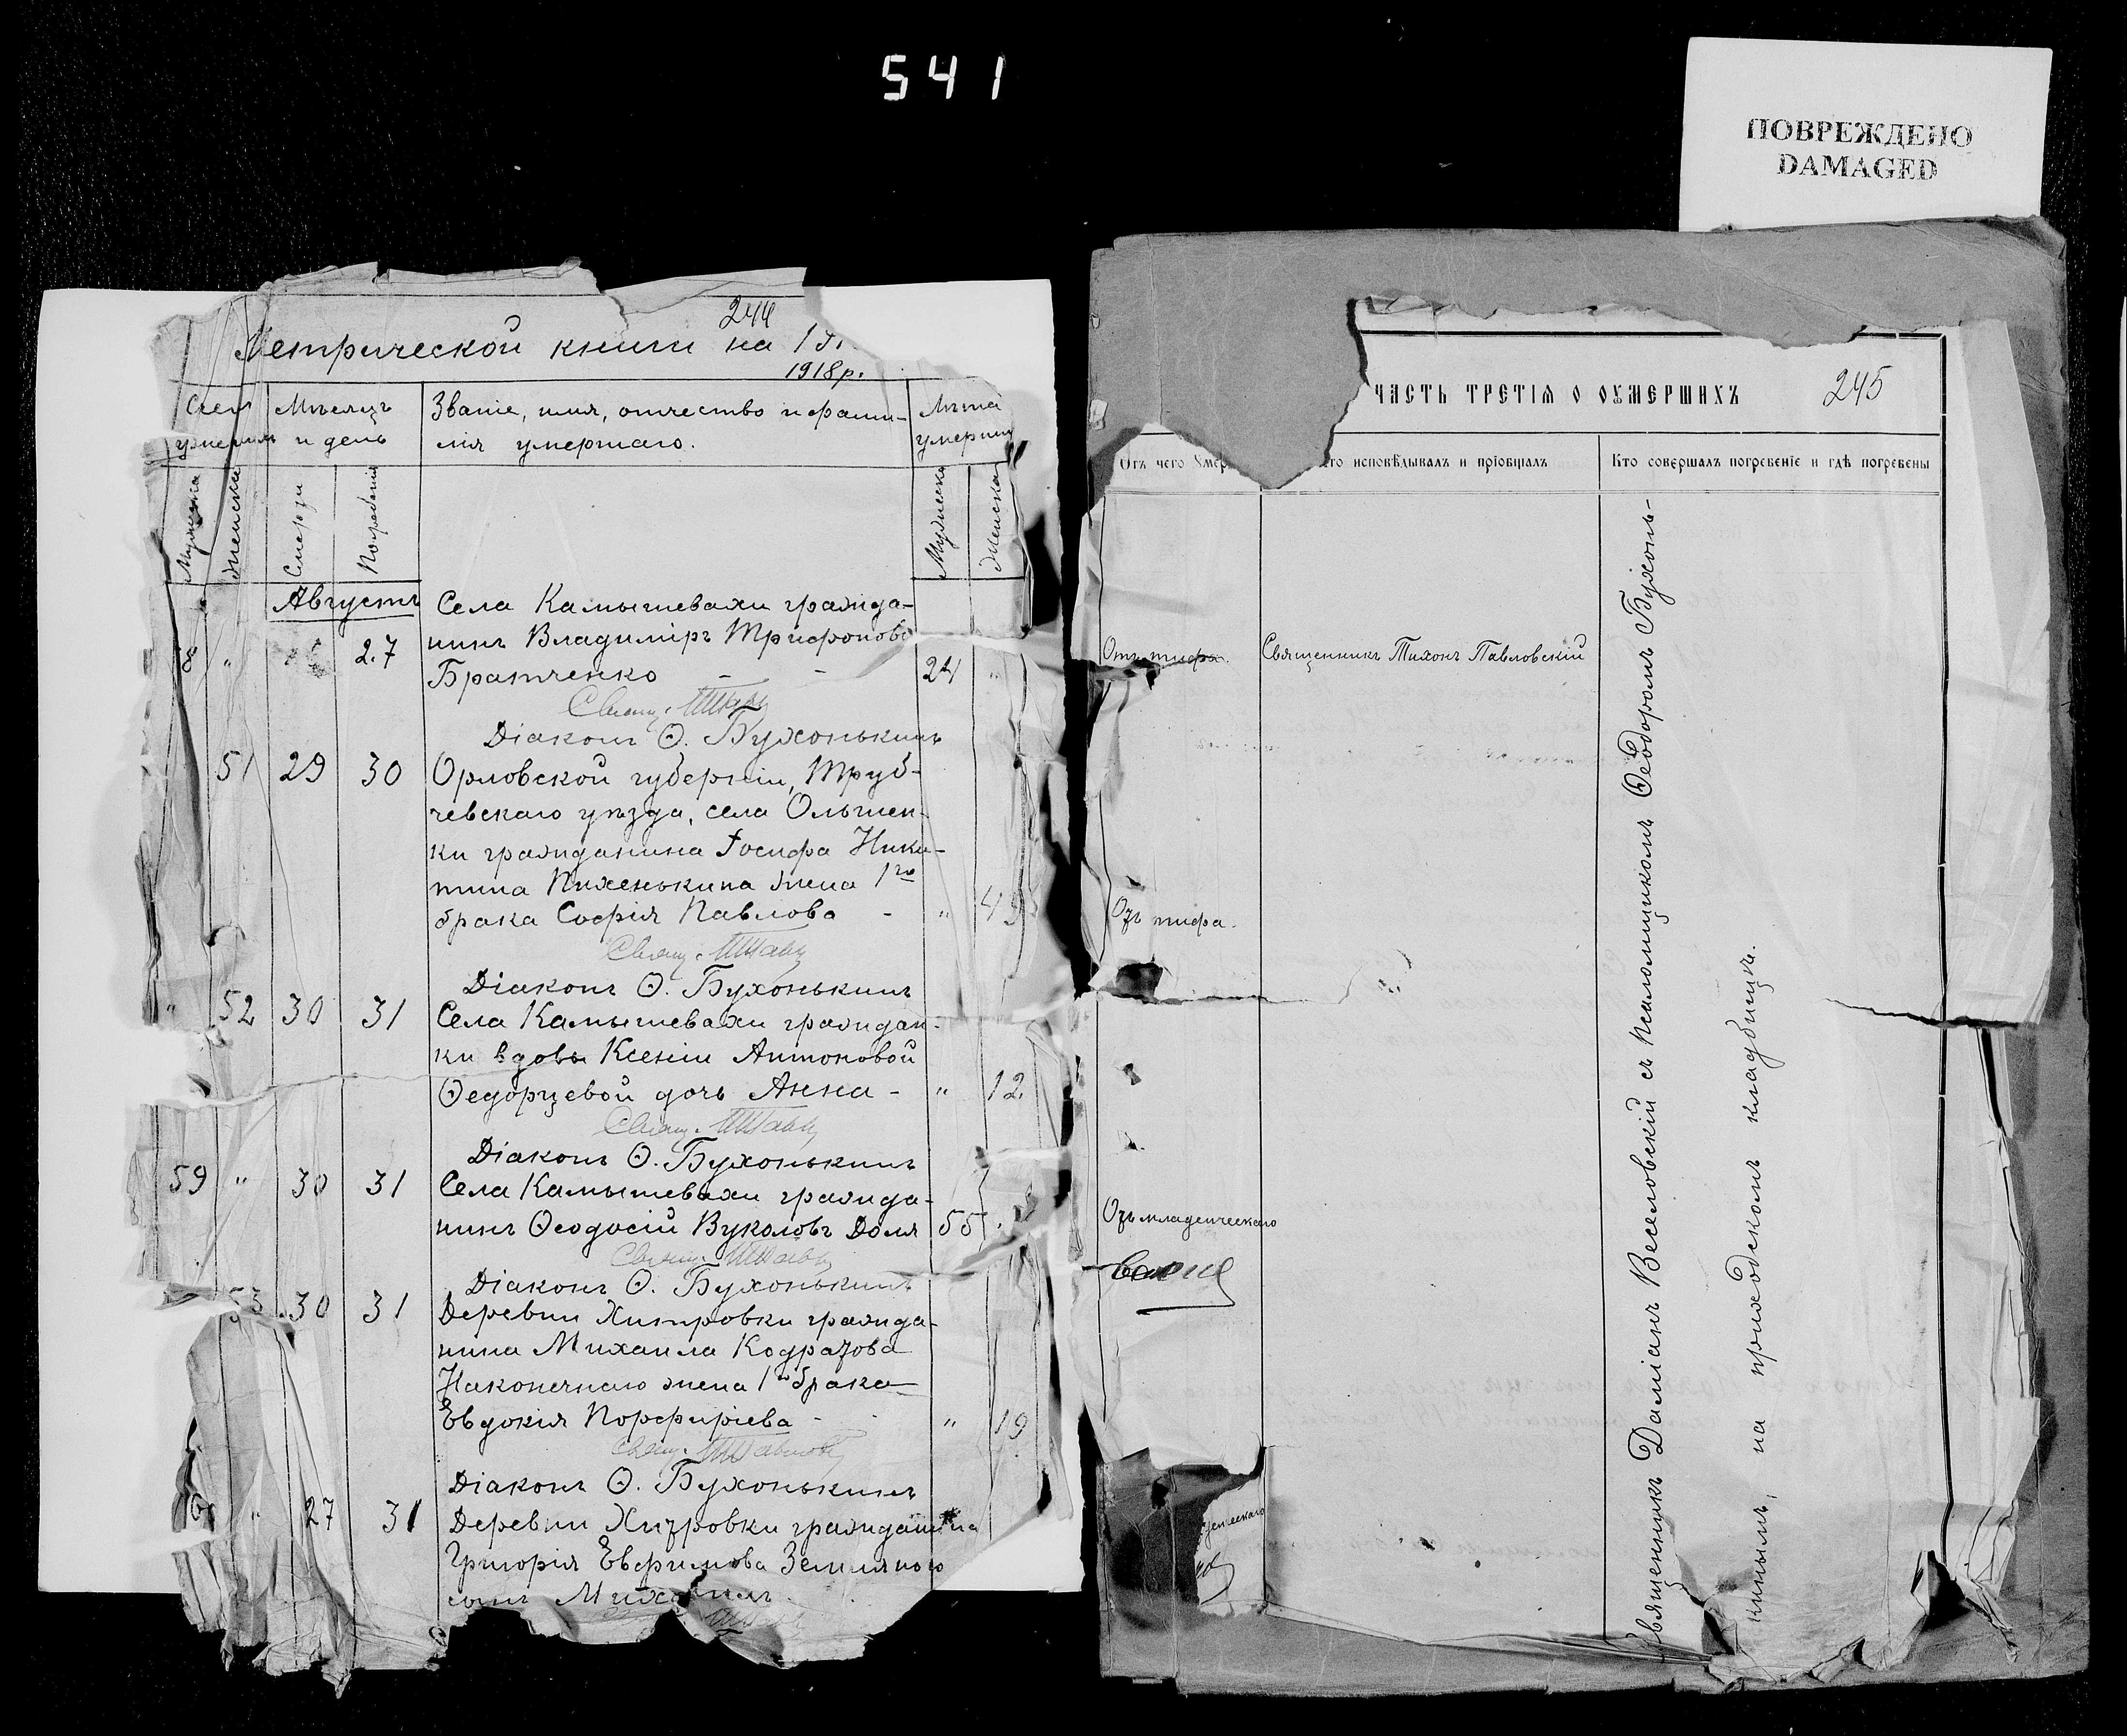 541
ПОВРЕЖДЕНО
DAMAGED
244
Метрической книги на
1918р.
Мѣсяцъ и день
Званіе, имя, отчество и фами-
лія умершаго.
Лѣта
Женска
Смерти
Погребенія
Мужеска
Женска
Августъ
Села Камышевахи гражда-
" 27 нинъ Владиміръ Трифоновъ
Братченко - - 24 "
Свящ.
Діаконъ Ѳ. Бухонькинъ
51 29 30 Орловской губерніи, Труб-
чевскаго уѣзда, села Ольшен-
ки гражданина Іосифа Ники-
тина Пихенькина жена 1го
брака Софія Павлова - "
Свящ.
Діаконъ Ѳ. Бухонькинъ
" 52 30 31 Села Камышевахи граждан-
ки вдовы Ксеніи Антоновой
Ѳедорцевой дочь Анна - " 12.
Свящ.
Діаконъ Ѳ. Бухонькинъ
59 " 30 31 Села Камышевахи гражда-
нинъ Ѳеодосій Вуколовъ Доля 55
Свящ.
Діаконъ Ѳ. Бухонькинъ
53 30 31 Деревни Хитровки гражда-
нина Михаила Кодратова
Наконечнаго жена 1го брака
Евдокія Порфиріева - " 19
Свящ.
Діаконъ Ѳ. Бухонькинъ
" 27 31 Деревни Хитровки гражданина
Григорія Евфимова Земляного
сынъ Михаилъ
ЧАСТЬ ТРЕТІЯ О ОУМЕРШИХЪ
245
Отъ чего
исповѣдывалъ и пріобщалъ
Кто совершалъ погребеніе и гдѣ погребены
Отъ тифа.
Священникъ Тихонъ Павловскій
Отъ тифа.
Отъ младенческаго
Священникъ Даміанъ Веселовскій съ псаломщикомъ Ѳеодоромъ Бухонь-
кинымъ, на приходскомъ кладбищѣ.